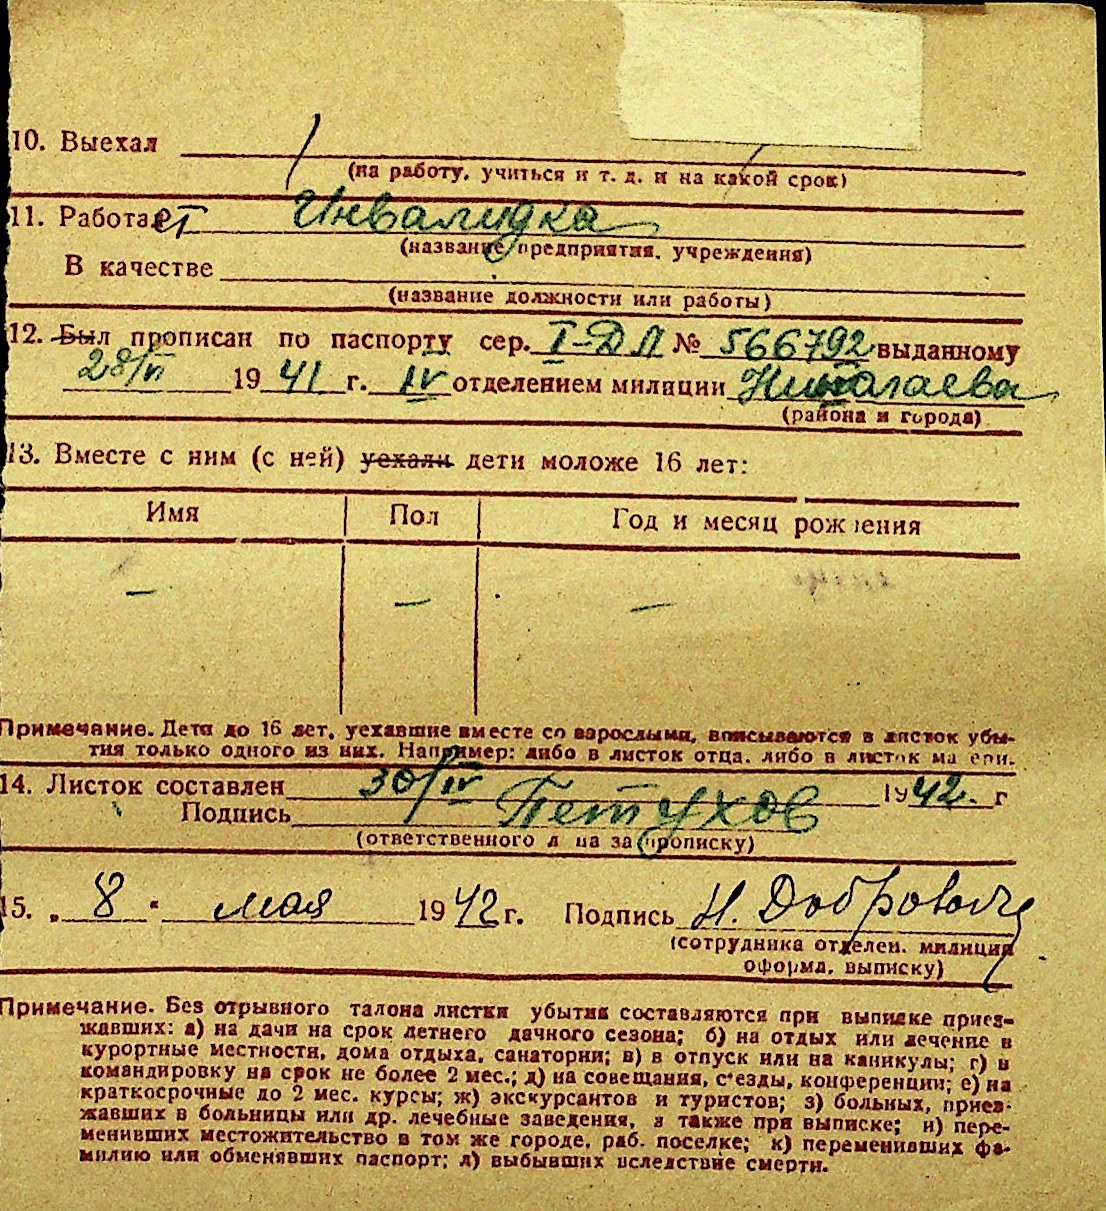 10. Выехал
(на работу, учиться и т. д. и на какой срок)
11. Работает Инвалидка
(название предприятия, учреждения)
В качестве
(название должности или работы)
12. Был прописан по паспорту сер. I-ДЛ № 566792 выданному
1941 г. IV отделением милиции Николаева
(района и города)
13. Вместе с ним (с ней) уехали дети моложе 16 лет:
Имя Пол Год и месяц рождения
— — —
Примечание. Дети до 16 лет, уехавшие вместе со взрослыми, вписываются в листок убы-
тия только одного из них. Например: либо в листок отца, либо в листок матери.
14. Листок составлен 30/IV 1942. г
Подпись Петухов
(ответственного лица за прописку)
15. „8" мая 1942 г. Подпись Н. Добровольч
(сотрудника отделен. милиции
оформл. выписку)
Примечание. Без отрывного талона листки убытия составляются при выписке приез-
жавших: а) на дачи на срок летнего дачного сезона; б) на отдых или лечение в
курортные местности, дома отдыха, санатории; в) в отпуск или на каникулы; г) в
командировку на срок не более 2 мес.; д) на совещания, с'езды, конференции; е) на
краткосрочные до 2 мес. курсы; ж) экскурсантов и туристов; з) больных, приез-
жавших в больницы или др. лечебные заведения, а также при выписке; и) пере-
менивших местожительство в том же городе, раб. поселке; к) переменивших фа-
милию или обменявших паспорт; л) выбывших вследствие смерти.